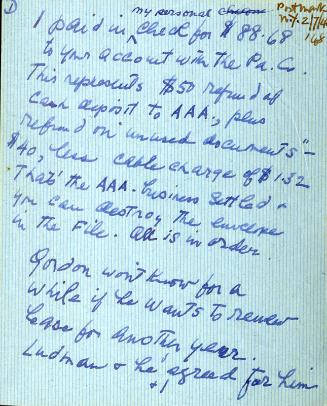 ①
Postmark
N.Y. 2/7/4
168
my personal
I paid in ^ check for $88.68
to your account with the Pa. Co.
This represents $50 refund of
cash deposit to AAA, plus
refund on "unused documents" -
$40, less cable charge of $1.32
That's the AAA. business settled &
you can destroy the envelope
in the File. All is in order.
Gordon won't know for a
while if he wants to renew
lease for another year.
Ludman & he agreed for him
& I